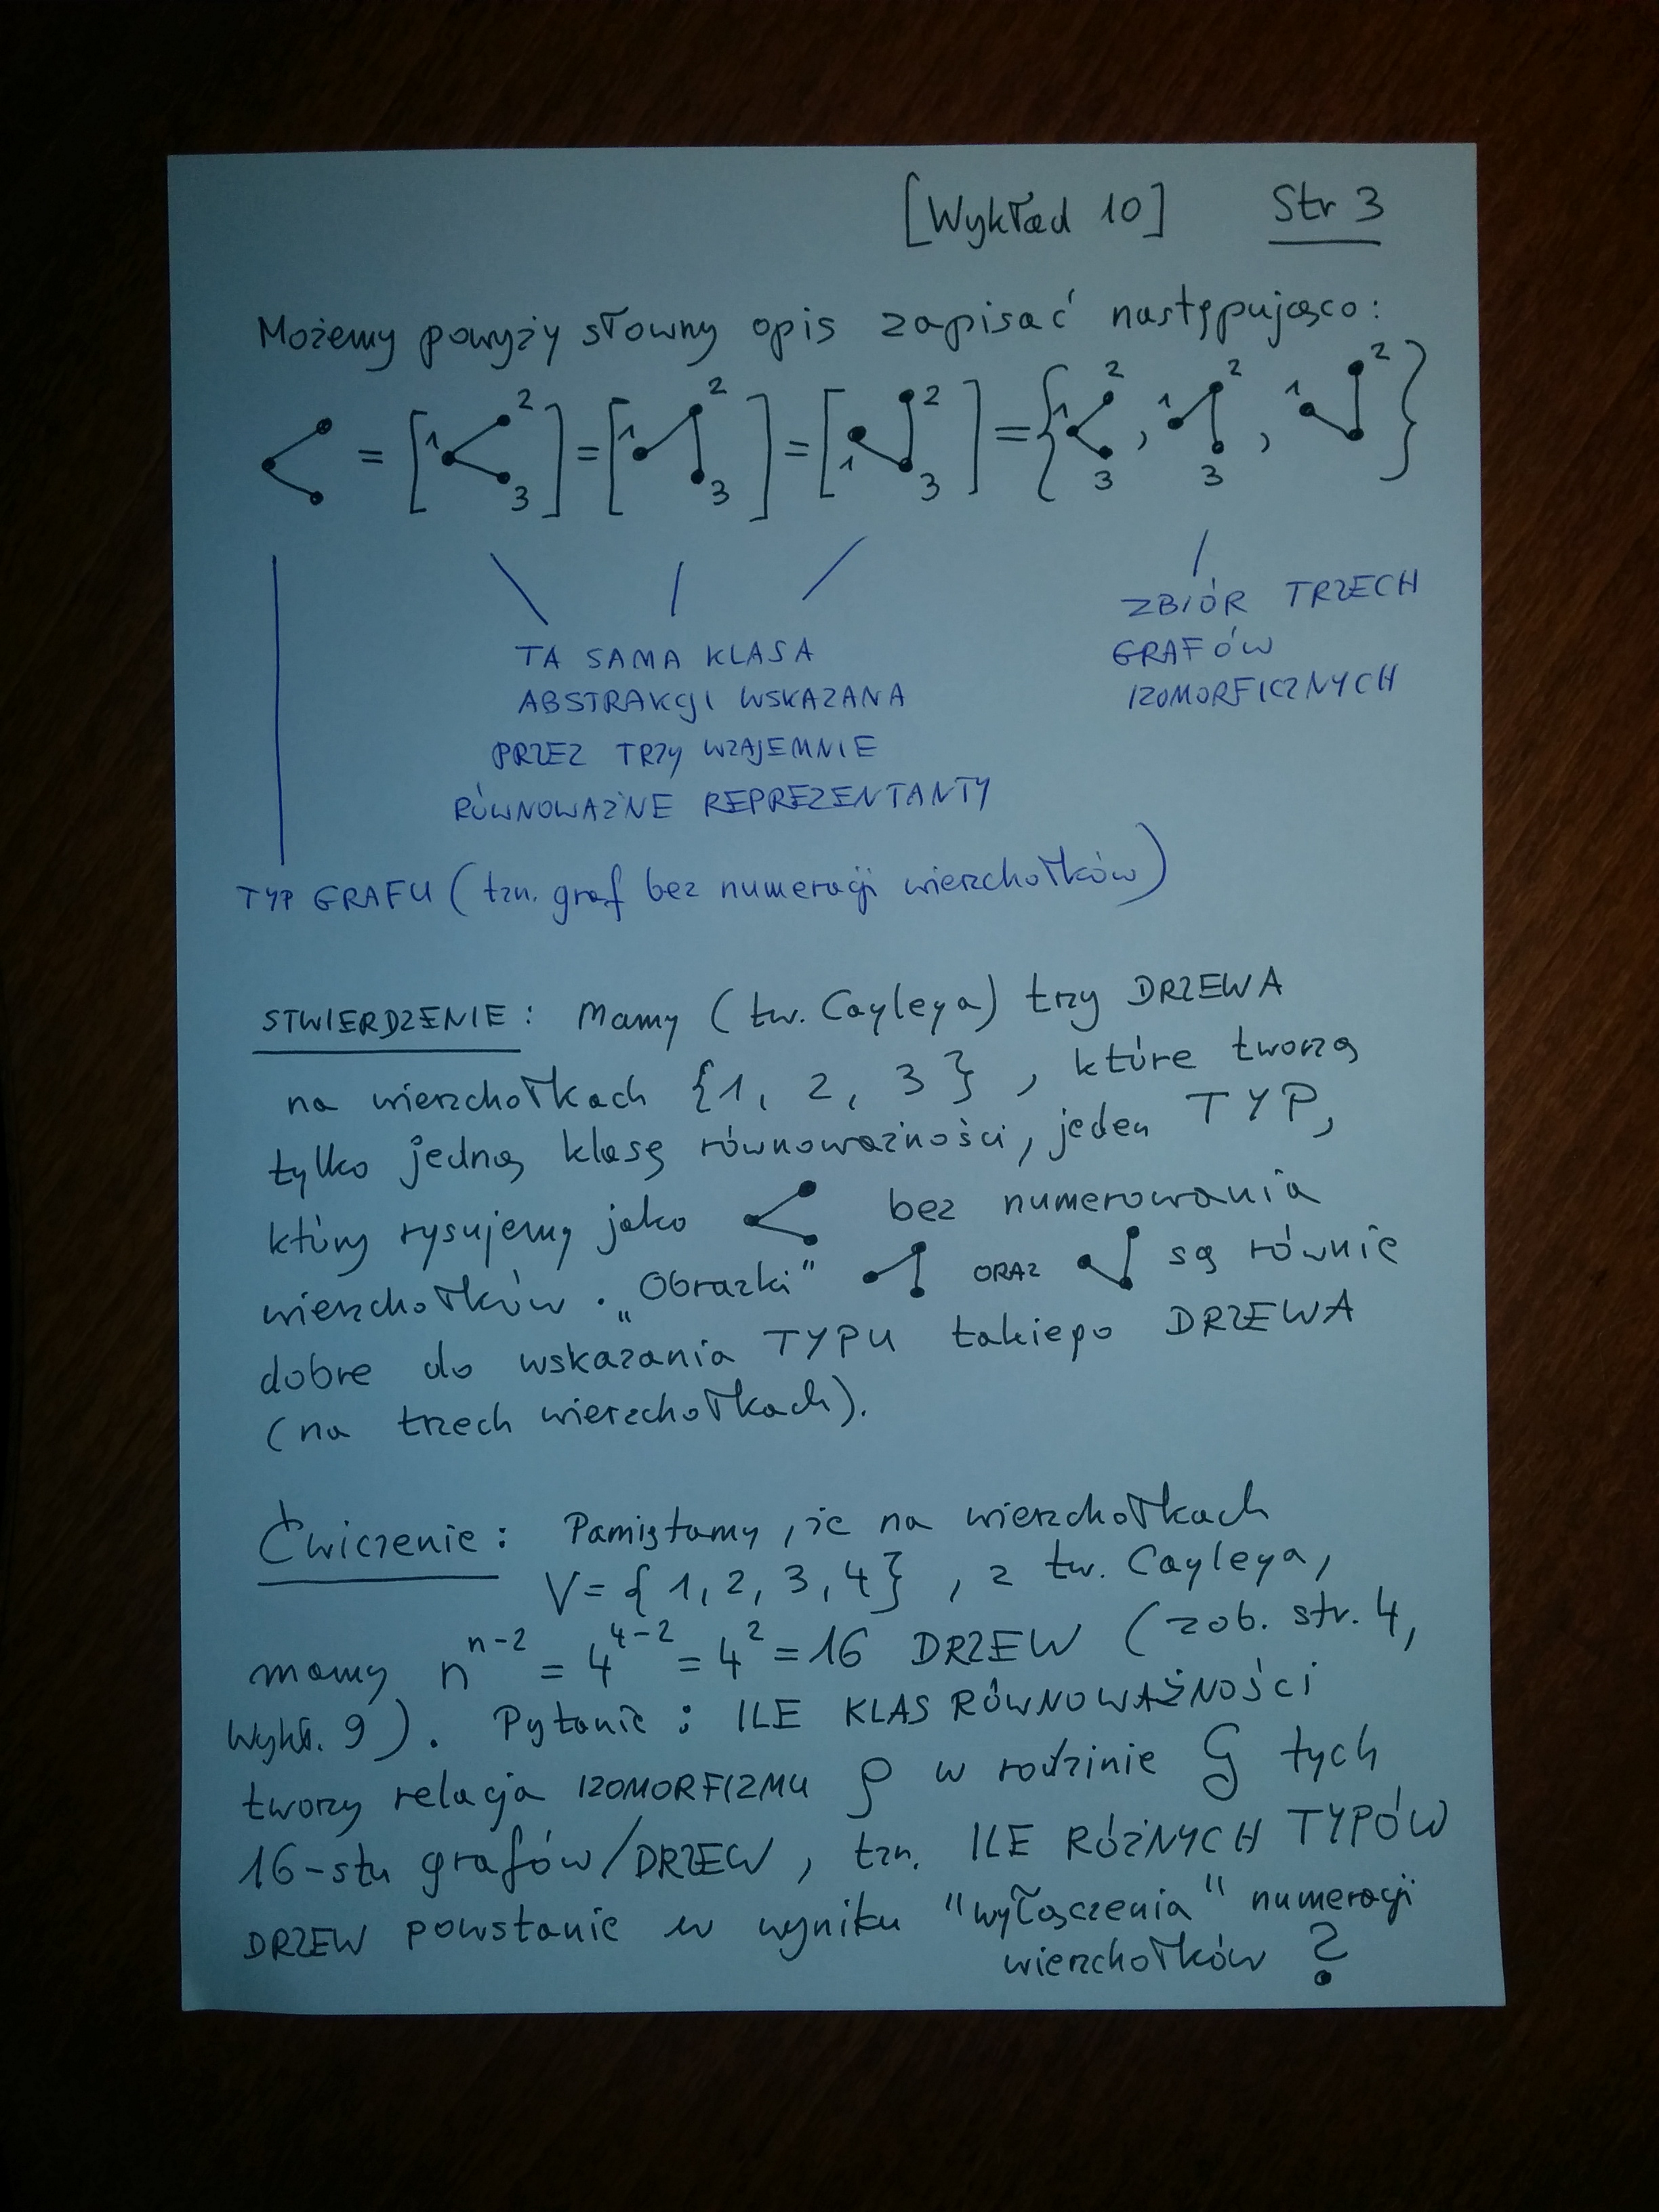 [Wykład 10] Str 3
Możemy powyży słowny opis zapisać następująco:
= [1 2 3] = [1 2 3] = [1 2 3] = {1 2 3, 1 2 3, 1 2}
ZBIÓR TRZECH
GRAFÓW
IZOMORFICZNYCH
TA SAMA KLASA
ABSTRAKCJI WSKAZANA
PRZEZ TRZY WZAJEMNIE
RÓWNOWAŻNE REPREZENTANTY
TYP GRAFU (tzn. graf bez numeracji wierzchołków)
STWIERDZENIE: Mamy (tw. Cayleya) trzy DRZEWA
na wierzchołkach {1, 2, 3}, które tworzą
tylko jedną klasę równoważności, jeden TYP,
który rysujemy jako bez numerowania
wierzchołków. „Obrazki" ORAZ są równie
dobre do wskazania TYPU takiego DRZEWA
(na trzech wierzchołkach).
Ćwiczenie: Pamiętamy, że na wierzchołkach
V = {1, 2, 3, 4}, z tw. Cayleya,
mamy n^{n-2} = 4^{4-2} = 4^2 = 16 DRZEW (zob. str. 4,
Wykł. 9). Pytanie: ILE KLAS RÓWNOWAŻNOŚCI
tworzy relacja IZOMORFIZMU ρ w rodzinie G tych
16-stu grafów/DRZEW, tzn. ILE RÓŻNYCH TYPÓW
DRZEW powstanie w wyniku "wyłączenia" numeracji
wierzchołków ?